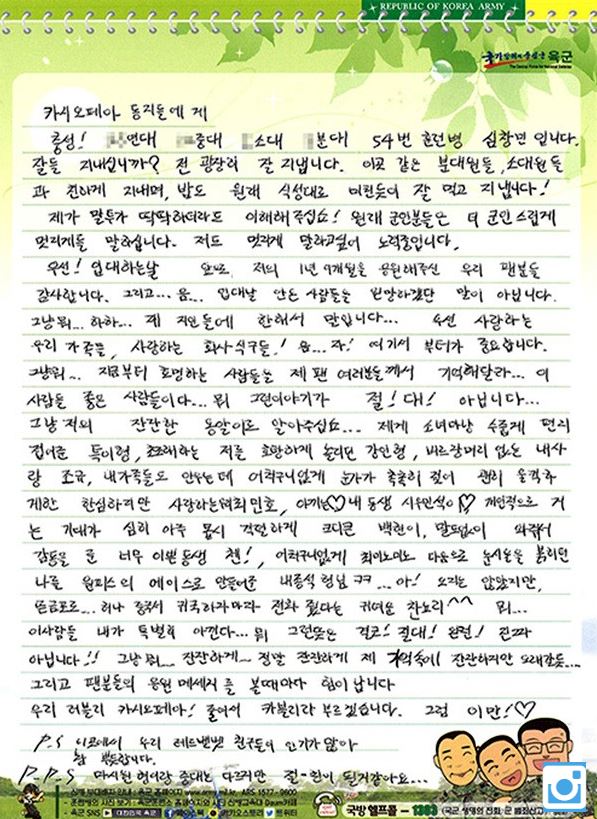 REPUBLIC OF KOREA ARMY
육군
The Central Force for National Defense
카시오페아 동지들에게
충성! 연대 중대 소대 분대 54번 훈련병 심창민 입니다.
잘들 지내십니까? 전 굉장히 잘 지냅니다. 이곳 같은 분대원들, 소대원들
과 친하게 지내며, 밥도 원래 식성대로 미친듯이 잘 먹고 지냅니다!
제가 말투가 딱딱하더라도 이해해 주십쇼! 원래 군인분들은 더 군인스럽게
멋지게들 말하십니다. 저도 멋지게 말하고싶어 노력중입니다.
우선! 입대하는날 앞으로 저의 1년 9개월을 응원해주신 우리 팬분들
감사합니다. 그리고... 음... 입대날 안온 사람들을 원망하겠단 말이 아닙니다.
그냥 뭐... 하하... 제 지인들에 한해서 말입니다... 우선 사랑하는
우리 가족들, 사랑하는 회사식구들! 음...자! 여기서 부터가 중요합니다.
그냥뭐... 지금부터 호명하는 사람들을 제 팬 여러분들께서 기억해달라... 이
사람들 좋은 사람들이다... 뭐 그런이야기가 절! 대! 아닙니다...
그냥 저의 잔잔한 동앝이로 알아주십쇼... 제게 소녀마냥 수줍게 편지
접어준 특이형, 초조해하는 저를 희망하게 놀리던 강인형, 버르장머리 없는 내사
랑 조규, 내가족들도 안우는데 어처구니없게 눈가가 촉촉히 젖어 괜히 울컥하
게한 한심하지만 사랑하는 최민호, 아끼는♡내 동생 시우민석이♡ 개인적으로 거
는 기대가 심히 아주 몹시 격렬하게 크디큰 백현이, 말도없이 와줘서
감동을 준 너무 이쁜동생 첸!, 어처구니없게 최미노미노 다음으로 눈시울을 붉히던
나를 원피스의 에이스로 만들어준 내종석 형님 ㅋㅋ ...아! 오지는 않았지만,
뜬금포로... 허나 중국서 귀국하자마자 전화 줬다는 귀여운 찬요리^^ 뭐...
이사람들 내가 특별히 아낀다... 뭐 그런뜻은 결코! 절대! 완전! 진짜
아닙니다!! 그냥 뭐... 잔잔하게~ 정말 잔잔하게 제 기억속에 잔잔하지만 오래갈듯...
그리고 팬분들의 응원 메세지를 볼때마다 힘이 납니다
우리 러블리 카시오페아! 줄여서 카블리라 부르겠습니다. 그럼 이만!♡
P.S 이곳에서 우리 레드벨벳 친구들이 인기가 많아
참 뿌듯합니다.
P.P.S 마시된 현이랑 중대는 다르지만 절-친이 될거같아요...
신병 부대배치 안내 : 육군 홈페이지 www.army.mil.kr, ARS 1577-9600
훈련병의 사진 보기 : 육군훈련소 홈페이지와 사단 신병교육대 Daum카페
육군 SNS 대한민국 육군 카카오스토리 트위터
국방헬프콜 - 1303 (국군 생명의 전화: 군 범죄신고